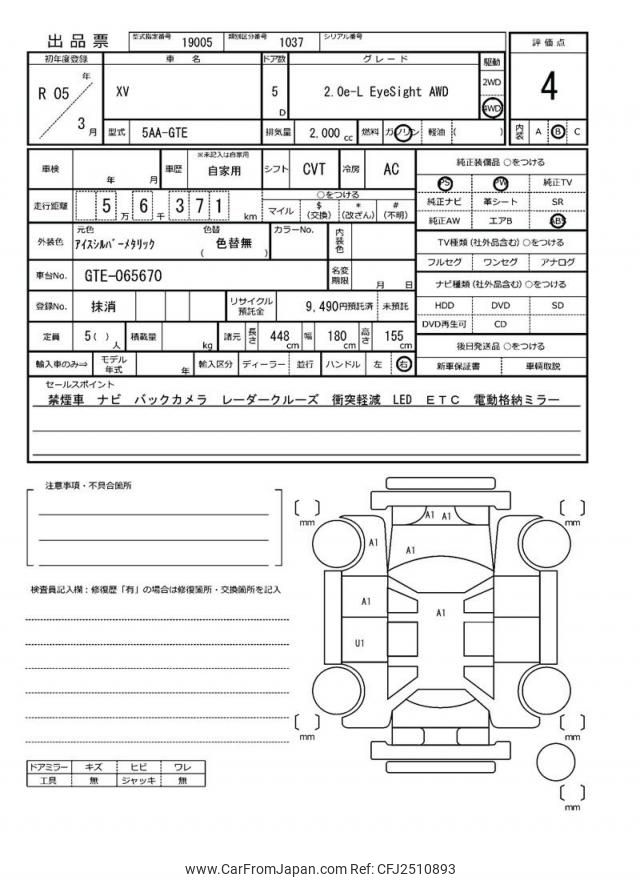 出品票 型式指定番号 19005 類別区分番号 1037 シリアル番号
初年度登録 車名 ドア数 グレード 駆動 評価点
R 05 年 3 月 XV 5 D 2.0e-L EyeSight AWD 2WD 4WD 4
型式 5AA-GTE 排気量 2,000 cc 燃料 ガソリン 軽油 ( ) 内装 A B C
車検 年 月 車歴 ※未記入は自家用 自家用 シフト CVT 冷房 AC
走行距離 5 万 6 千 3 7 1 km ○をつける
マイル $ (交換) * (改ざん) # (不明)
外装色 元色 アイスシルバーメタリック 色替 色替無 ( ) カラーNo. 内装色
車台No. GTE-065670 名変期限 月 日
登録No. 抹消 リサイクル預託金 9,490円預託済 未預託
定員 5 ( ) 人 積載量 kg 諸元 長さ 448 cm 幅 180 cm 高さ 155 cm
輸入車のみ⇒ モデル年式 年 輸入区分 ディーラー 並行 ハンドル 左 右
純正装備品 ○をつける
PS PW 純正TV
純正ナビ 革シート SR
純正AW エアB ABS
TV種類 (社外品含む) ○をつける
フルセグ ワンセグ アナログ
ナビ種類 (社外品含む) ○をつける
HDD DVD SD
DVD再生可 CD
後日発送品 ○をつける
新車保証書 車輌取説
セールスポイント
禁煙車 ナビ バックカメラ レーダークルーズ 衝突軽減 LED ETC 電動格納ミラー
注意事項・不具合箇所
検査員記入欄：修復歴「有」の場合は修復箇所・交換箇所を記入
ドアミラー キズ ヒビ ワレ
工具 無 ジャッキ 無
〔 〕 mm 〔 〕 mm
A1 A1
A1
A1
A1
A1
U1
〔 〕 mm 〔 〕 mm
〔 〕 mm
www.CarFromJapan.com Ref: CFJ2510893